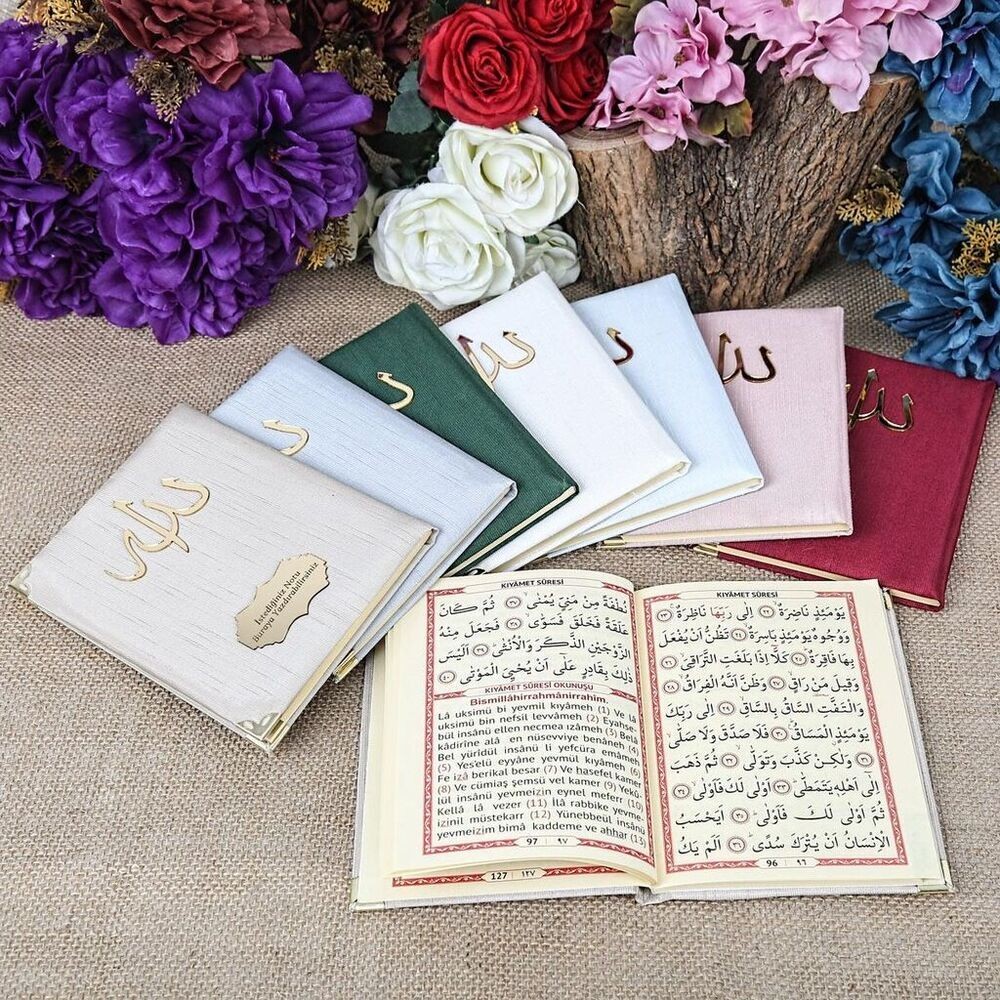 İstediğiniz Notu
Buraya Yazdırabilirsiniz
KIYÂMET SÛRESİ
نُطْفَةً مِنْ مَنِيٍّ يُمْنٰىۙ ﴿٣٧﴾ ثُمَّ كَانَ
عَلَقَةً فَخَلَقَ فَسَوّٰىۙ ﴿٣٨﴾ فَجَعَلَ مِنْهُ
الزَّوْجَيْنِ الذَّكَرَ وَالْاُنْثٰىۜ ﴿٣٩﴾ اَلَيْسَ
ذٰلِكَ بِقَادِرٍ عَلٰٓى اَنْ يُحْيِيَ الْمَوْتٰى ﴿٤٠﴾
KIYÂMET SÛRESİ OKUNUŞU
Bismillâhirrahmânirrahîm.
Lâ uksimü bi yevmil kıyâmeh (1) Ve lâ
uksimü bin nefsil levvâmeh (2) Eyahse-
bül insânü ellen necmea ızâmeh (3) Belâ
kâdirîne alâ en nüsevviye benâneh (4)
Bel yürîdül insânü li yefcüra emâmeh
(5) Yes'elü eyyâne yevmül kıyâmeh (6)
Fe izâ berikal besar (7) Ve hasefel kamer
(8) Ve cümiaş şemsü vel kamer (9) Yekû-
lül insânü yevmeizin eynel meferr (10)
Kellâ lâ vezer (11) İlâ rabbike yevme-
izinil müstekarr (12) Yünebbeül insânü
yevmeizim bimâ kaddeme ve ahhar (13)
97 ٩٧
127 ١٢٧
KIYÂMET SÛRESİ
يَوْمَئِذٍ نَاضِرَةٌۙ ﴿٢٢﴾ اِلٰى رَبِّهَا نَاظِرَةٌۚ ﴿٢٣﴾
وَوُجُوهٌ يَوْمَئِذٍ بَاسِرَةٌۙ ﴿٢٤﴾ تَظُنُّ اَنْ يُفْعَلَ
بِهَا فَاقِرَةٌۜ ﴿٢٥﴾ كَلَّٓا اِذَا بَلَغَتِ التَّرَاقِيَۙ ﴿٢٦﴾
وَق۪يلَ مَنْ رَاقٍۙ ﴿٢٧﴾ وَظَنَّ اَنَّهُ الْفِرَاقُۙ ﴿٢٨﴾
وَالْتَفَّتِ السَّاقُ بِالسَّاقِۙ ﴿٢٩﴾ اِلٰى رَبِّكَ
يَوْمَئِذٍ الْمَسَاقُۜ ﴿٣٠﴾ فَلَا صَدَّقَ وَلَا صَلّٰىۙ
﴿٣١﴾ وَلٰكِنْ كَذَّبَ وَتَوَلّٰىۙ ﴿٣٢﴾ ثُمَّ ذَهَبَ
اِلٰٓى اَهْلِه۪ يَتَمَطّٰىۜ ﴿٣٣﴾ اَوْلٰى لَكَ فَاَوْلٰىۙ ﴿٣٤﴾
ثُمَّ اَوْلٰى لَكَ فَاَوْلٰىۜ ﴿٣٥﴾ اَيَحْسَبُ
الْاِنْسَانُ اَنْ يُتْرَكَ سُدًىۜ ﴿٣٦﴾ اَلَمْ يَكُ
96 ٩٦